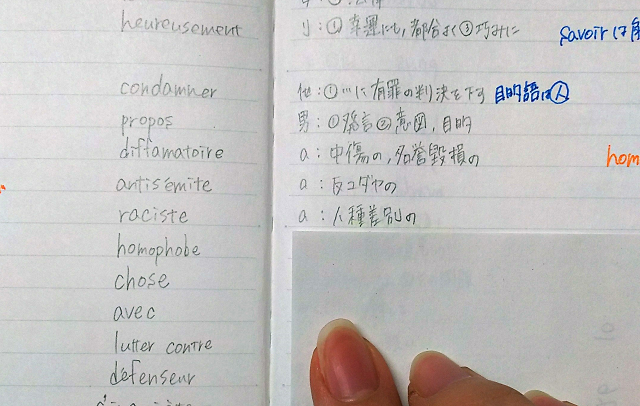 heureusement リ:①幸運にも,都合よく③巧みに savoirは
condamner 他:①…に有罪の判決を下す 目的語は人
propos 男:①発言②意図,目的
diffamatoire a:中傷の,名誉毀損の hom
antisémite a:反ユダヤの
raciste a:人種差別の
homophobe
chose
avec
lutter contre
défenseur